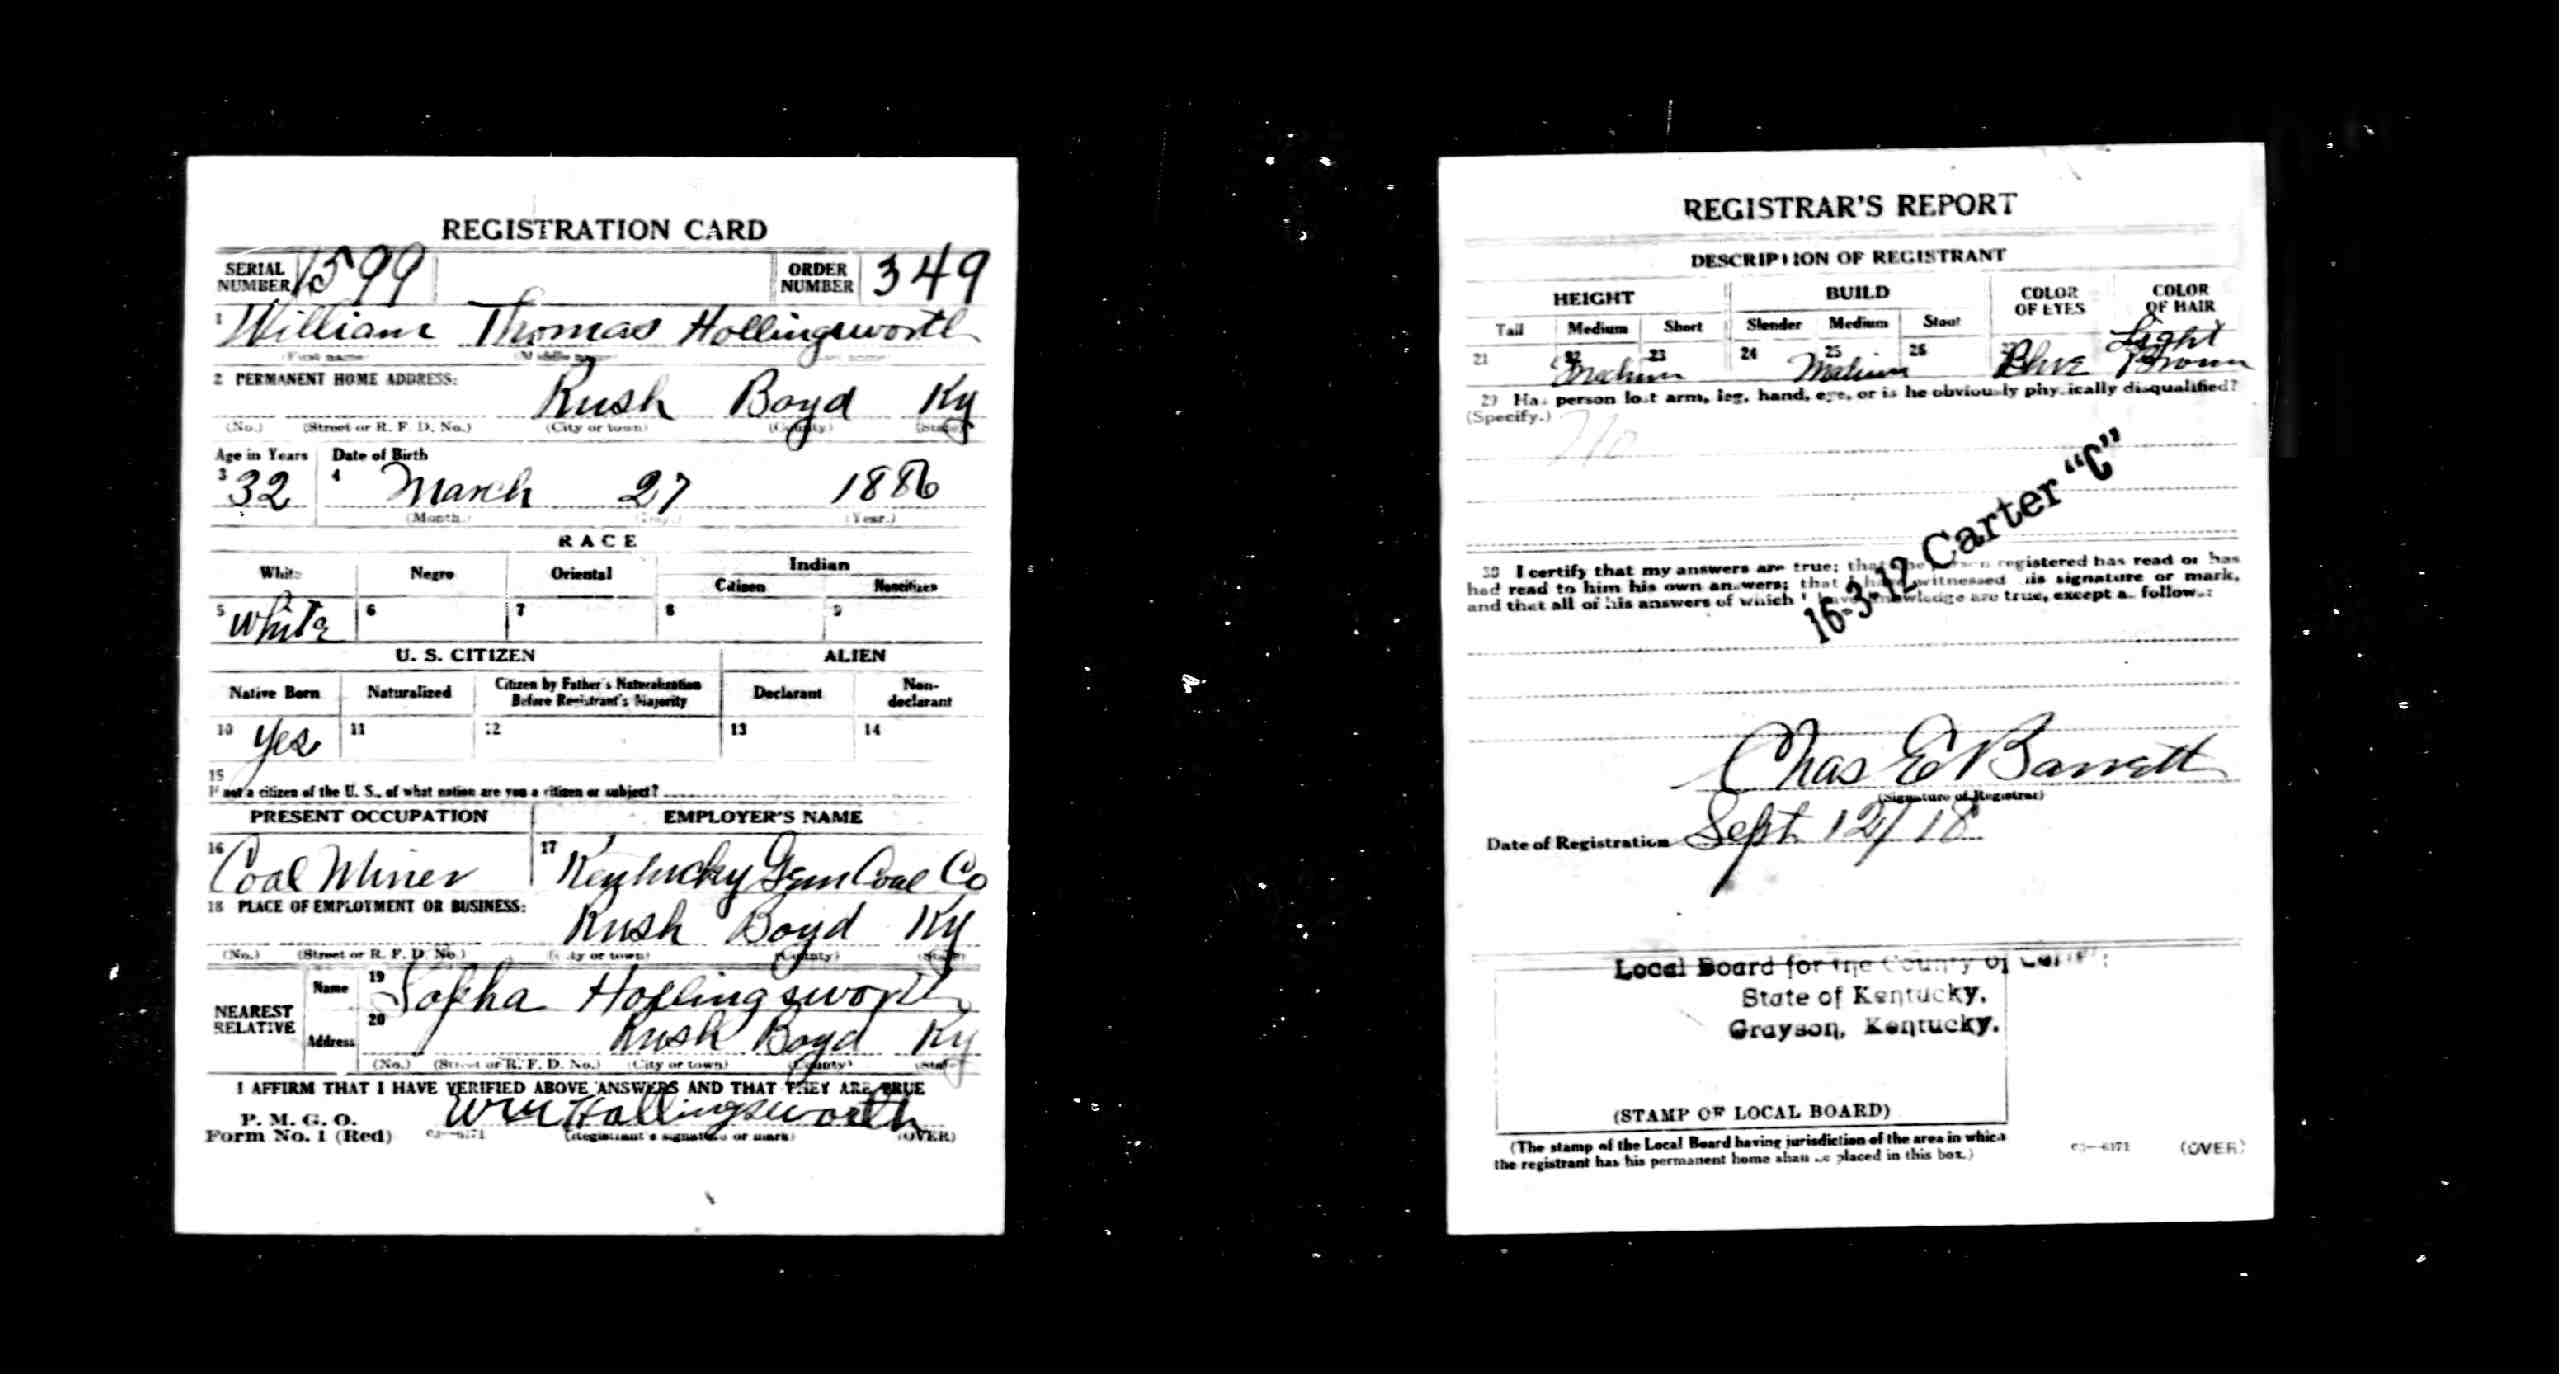 REGISTRATION CARD
SERIAL NUMBER 1599 ORDER NUMBER 349
1 William Thomas Hollingsworth
(First name) (Middle name) (Last name)
2 PERMANENT HOME ADDRESS:
Rush Boyd Ky
(No.) (Street or R. F. D. No.) (City or town) (County) (State)
Age in Years Date of Birth
3 32 4 March 27 1886
(Month.) (Day.) (Year.)
RACE
White Negro Oriental Indian
Citizen Noncitizen
5 White 6 7 8 9
U. S. CITIZEN ALIEN
Native Born Naturalized Citizen by Father's Naturalization Before Registrant's Majority Declarant Non-declarant
10 Yes 11 12 13 14
15
If not a citizen of the U. S., of what nation are you a citizen or subject?
PRESENT OCCUPATION EMPLOYER'S NAME
16 Coal Miner 17 Kentucky Gem Coal Co
18 PLACE OF EMPLOYMENT OR BUSINESS:
Rush Boyd Ky
(No.) (Street or R. F. D. No.) (City or town) (County) (State)
NEAREST RELATIVE Name 19 Sopha Hollingsworth
Address 20 Rush Boyd Ky
(No.) (Street or R. F. D. No.) (City or town) (County) (State)
I AFFIRM THAT I HAVE VERIFIED ABOVE ANSWERS AND THAT THEY ARE TRUE
P. M. G. O.
Form No. 1 (Red) Wm Hollingsworth
(Registrant's signature or mark) (OVER)
REGISTRAR'S REPORT
DESCRIPTION OF REGISTRANT
HEIGHT BUILD COLOR OF EYES COLOR OF HAIR
Tall Medium Short Slender Medium Stout
21 22 Medium 23 24 25 Medium 26 27 Blue Light Brown
29 Has person lost arm, leg, hand, eye, or is he obviously physically disqualified?
(Specify.) No
16-3-12 Carter "C"
30 I certify that my answers are true; that the person registered has read or has
had read to him his own answers; that I have witnessed his signature or mark,
and that all of his answers of which I have knowledge are true, except as follows:
Chas E Barrett
(Signature of Registrar)
Date of Registration Sept 12/18
Local Board for the County of
State of Kentucky,
Grayson, Kentucky.
(STAMP OF LOCAL BOARD)
(The stamp of the Local Board having jurisdiction of the area in which
the registrant has his permanent home shall be placed in this box.)
03—6171 (OVER)